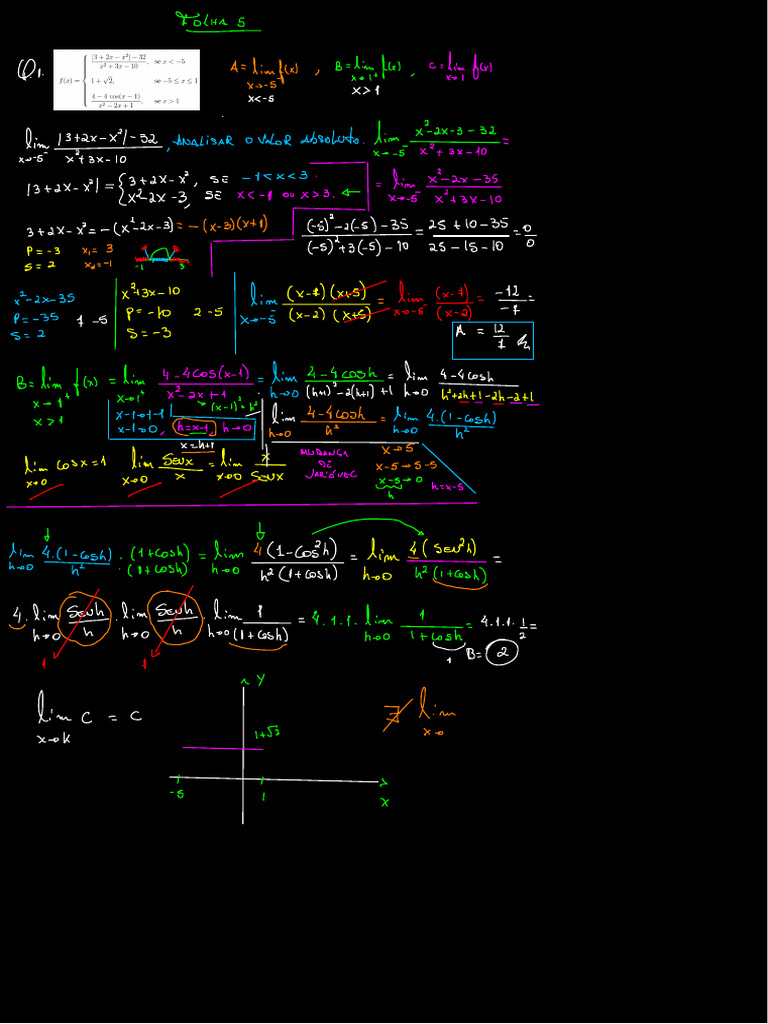 FOLHA 5
Q1. f(x) = { (|3 + 2x − x²| − 32)/(x² + 3x − 10), se x < −5
1 + √2, se −5 ≤ x ≤ 1
(4 − 4 cos(x − 1))/(x² − 2x + 1), se x > 1
A = lim f(x), B = lim f(x), C = lim f(x)
x→-5⁻ x→1⁺ x→1
x<-5 x>1
lim x→-5⁻ (|3+2x-x²|-32)/(x²+3x-10), ANALISAR O VALOR ABSOLUTO. lim x→-5⁻ (x²-2x-3-32)/(x²+3x-10) =
|3+2x-x²| = { 3+2x-x², SE -1<x<3.
x²-2x-3, SE x<-1 ou x>3. ←
= lim x→-5⁻ (x²-2x-35)/(x²+3x-10)
3+2x-x² = -(x²-2x-3) = -(x-3)(x+1)
((-5)²-2(-5)-35)/((-5)²+3(-5)-10) = (25+10-35)/(25-15-10) = 0/0
P=-3 x₁=3
S=2 x₂=-1
-1 3
x²-2x-35
P=-35 7 -5
S=2
x²+3x-10
P=-10 2 -5
S=-3
lim x→-5⁻ ((x-7)(x+5))/((x-2)(x+5)) = lim x→-5⁻ (x-7)/(x-2) = -12/-7 =
A = 12/7
B = lim x→1⁺ f(x) = lim x→1⁺ (4-4cos(x-1))/(x²-2x+1) = lim h→0 (4-4cosh)/((h+1)²-2(h+1)+1) = lim h→0 (4-4cosh)/(h²+2h+1-2h-2+1)
x>1
→(x-1)²=h²
x-1→1-1
x-1→0, h=x-1, h→0
x=h+1
lim h→0 (4-4cosh)/h² = lim h→0 4.(1-cosh)/h²
lim x→0 cosx=1 lim x→0 senx/x = lim x→0 x/senx
MUDANÇA DE VARIÁVEL
x→5
x-5→5-5
x-5→0
h
h=x-5
lim h→0 4.(1-cosh)/h² . (1+cosh)/(1+cosh) = lim h→0 4(1-cos²h)/(h²(1+cosh)) = lim h→0 4(sen²h)/(h²(1+cosh)) =
4. lim h→0 senh/h . lim h→0 senh/h . lim h→0 1/(1+cosh) = 4.1.1. lim h→0 1/(1+cosh) = 4.1.1.1/2 =
1 1 1 B= 2
lim x→k c = c
Y
1+√2
-5 1 x
∄ lim
x→